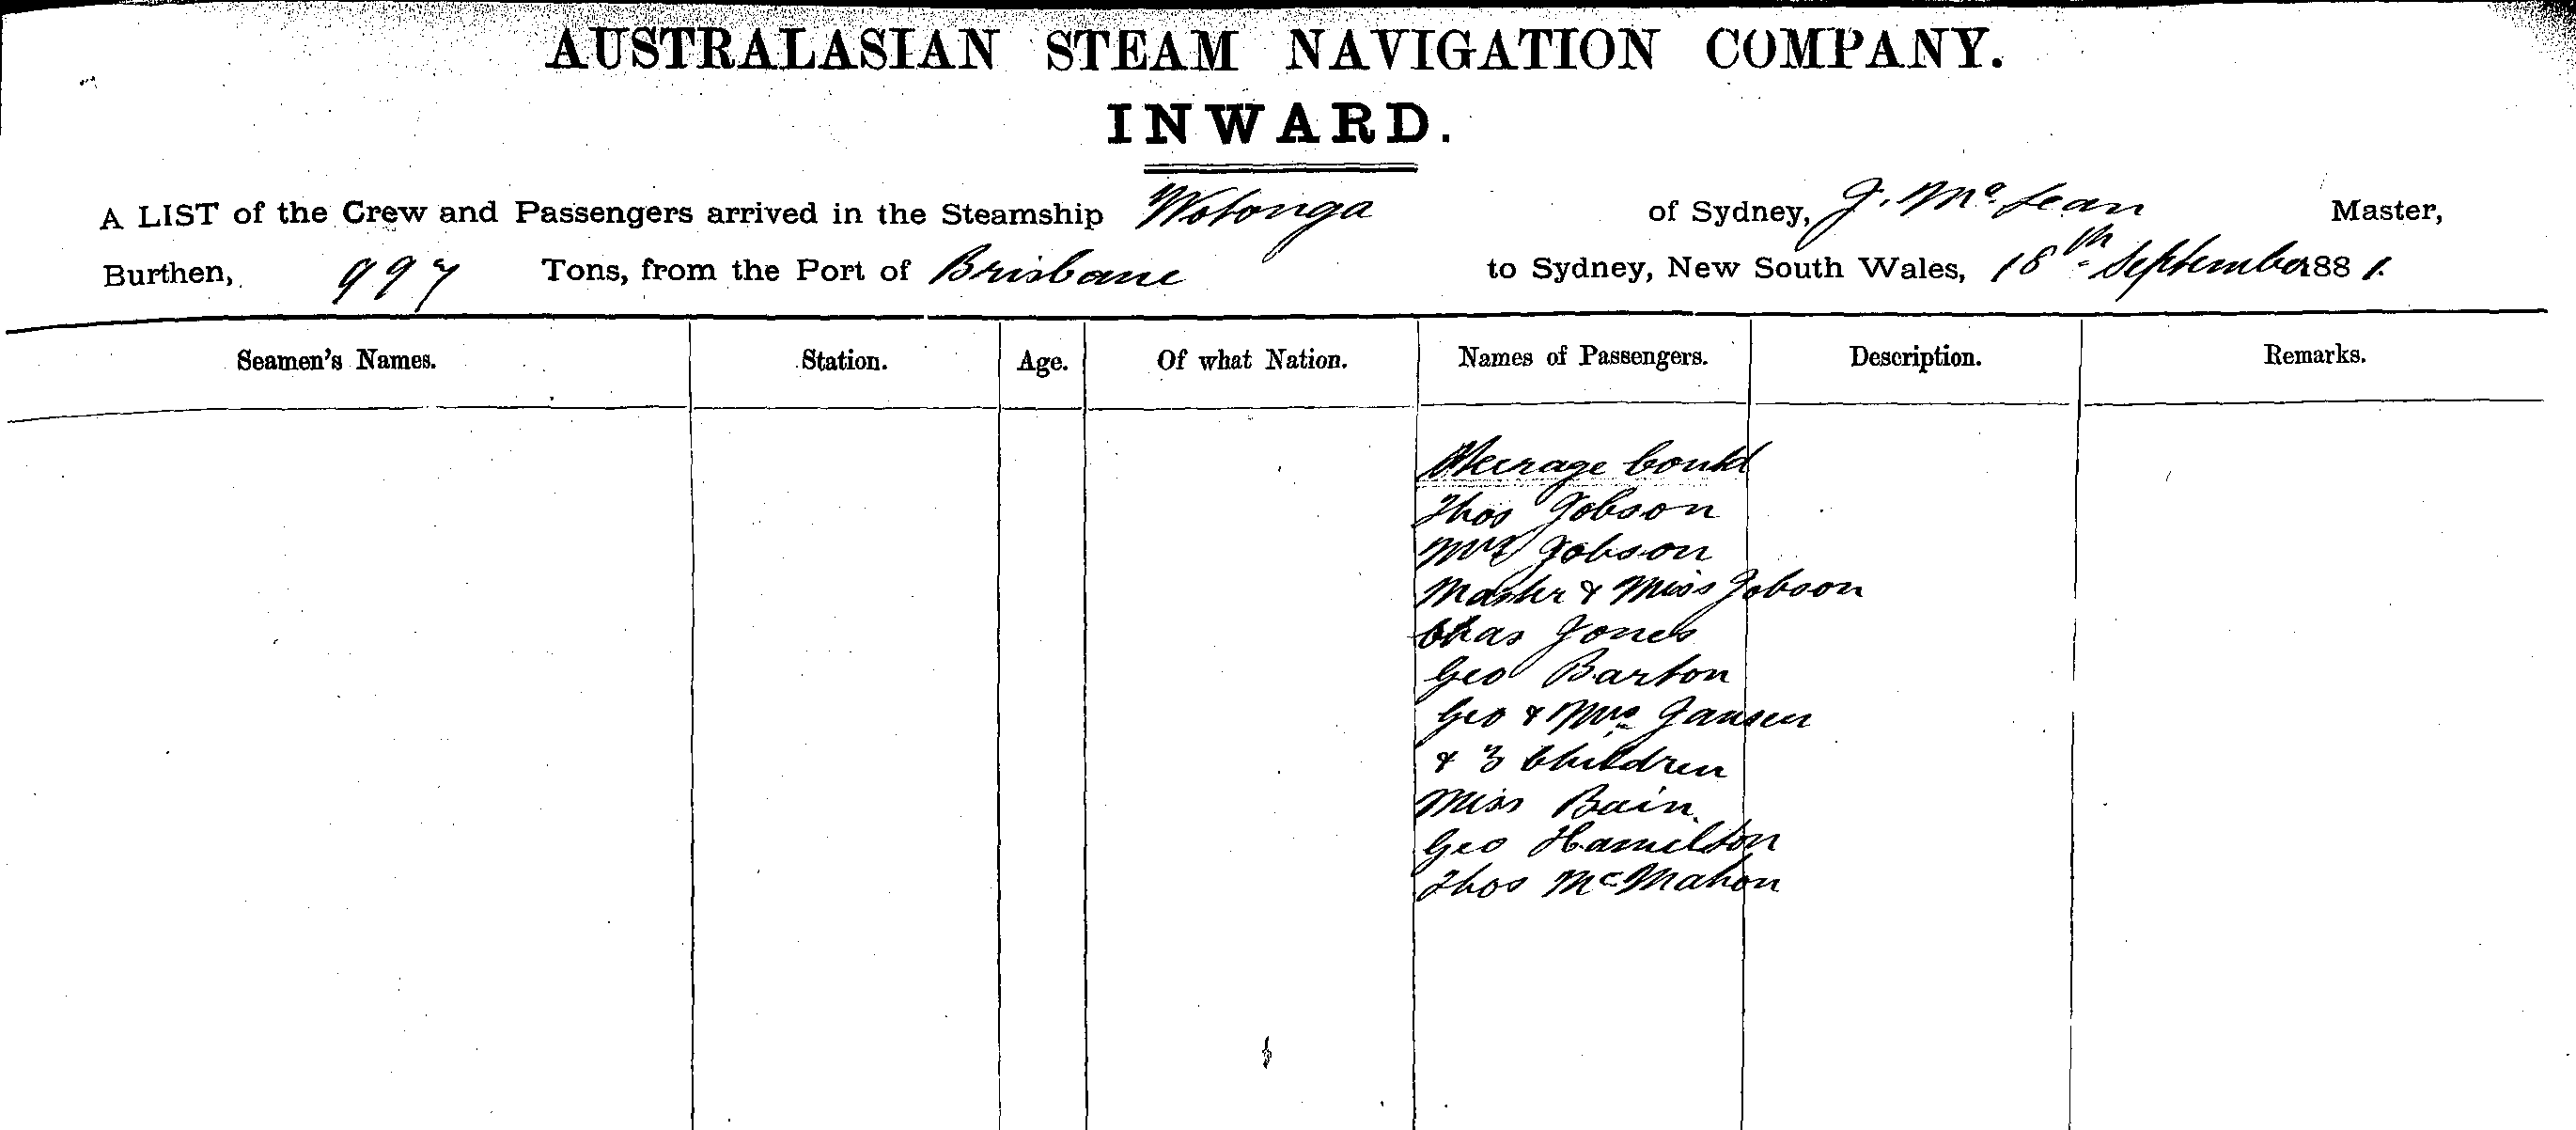 AUSTRALASIAN STEAM NAVIGATION COMPANY.
INWARD.
A LIST of the Crew and Passengers arrived in the Steamship Wotonga of Sydney, J. McLean Master,
Burthen, 997 Tons, from the Port of Brisbane to Sydney, New South Wales, 18th September 1881.
Seamen's Names. Station. Age. Of what Nation. Names of Passengers. Description. Remarks.
Steerage Contd
Thos Jobson
Mrs Jobson
Master & Miss Jobson
Chas Jones
Geo Barton
Geo & Mrs Jansen
& 3 Children
Miss Bain
Geo Hamilton
Thos McMahon